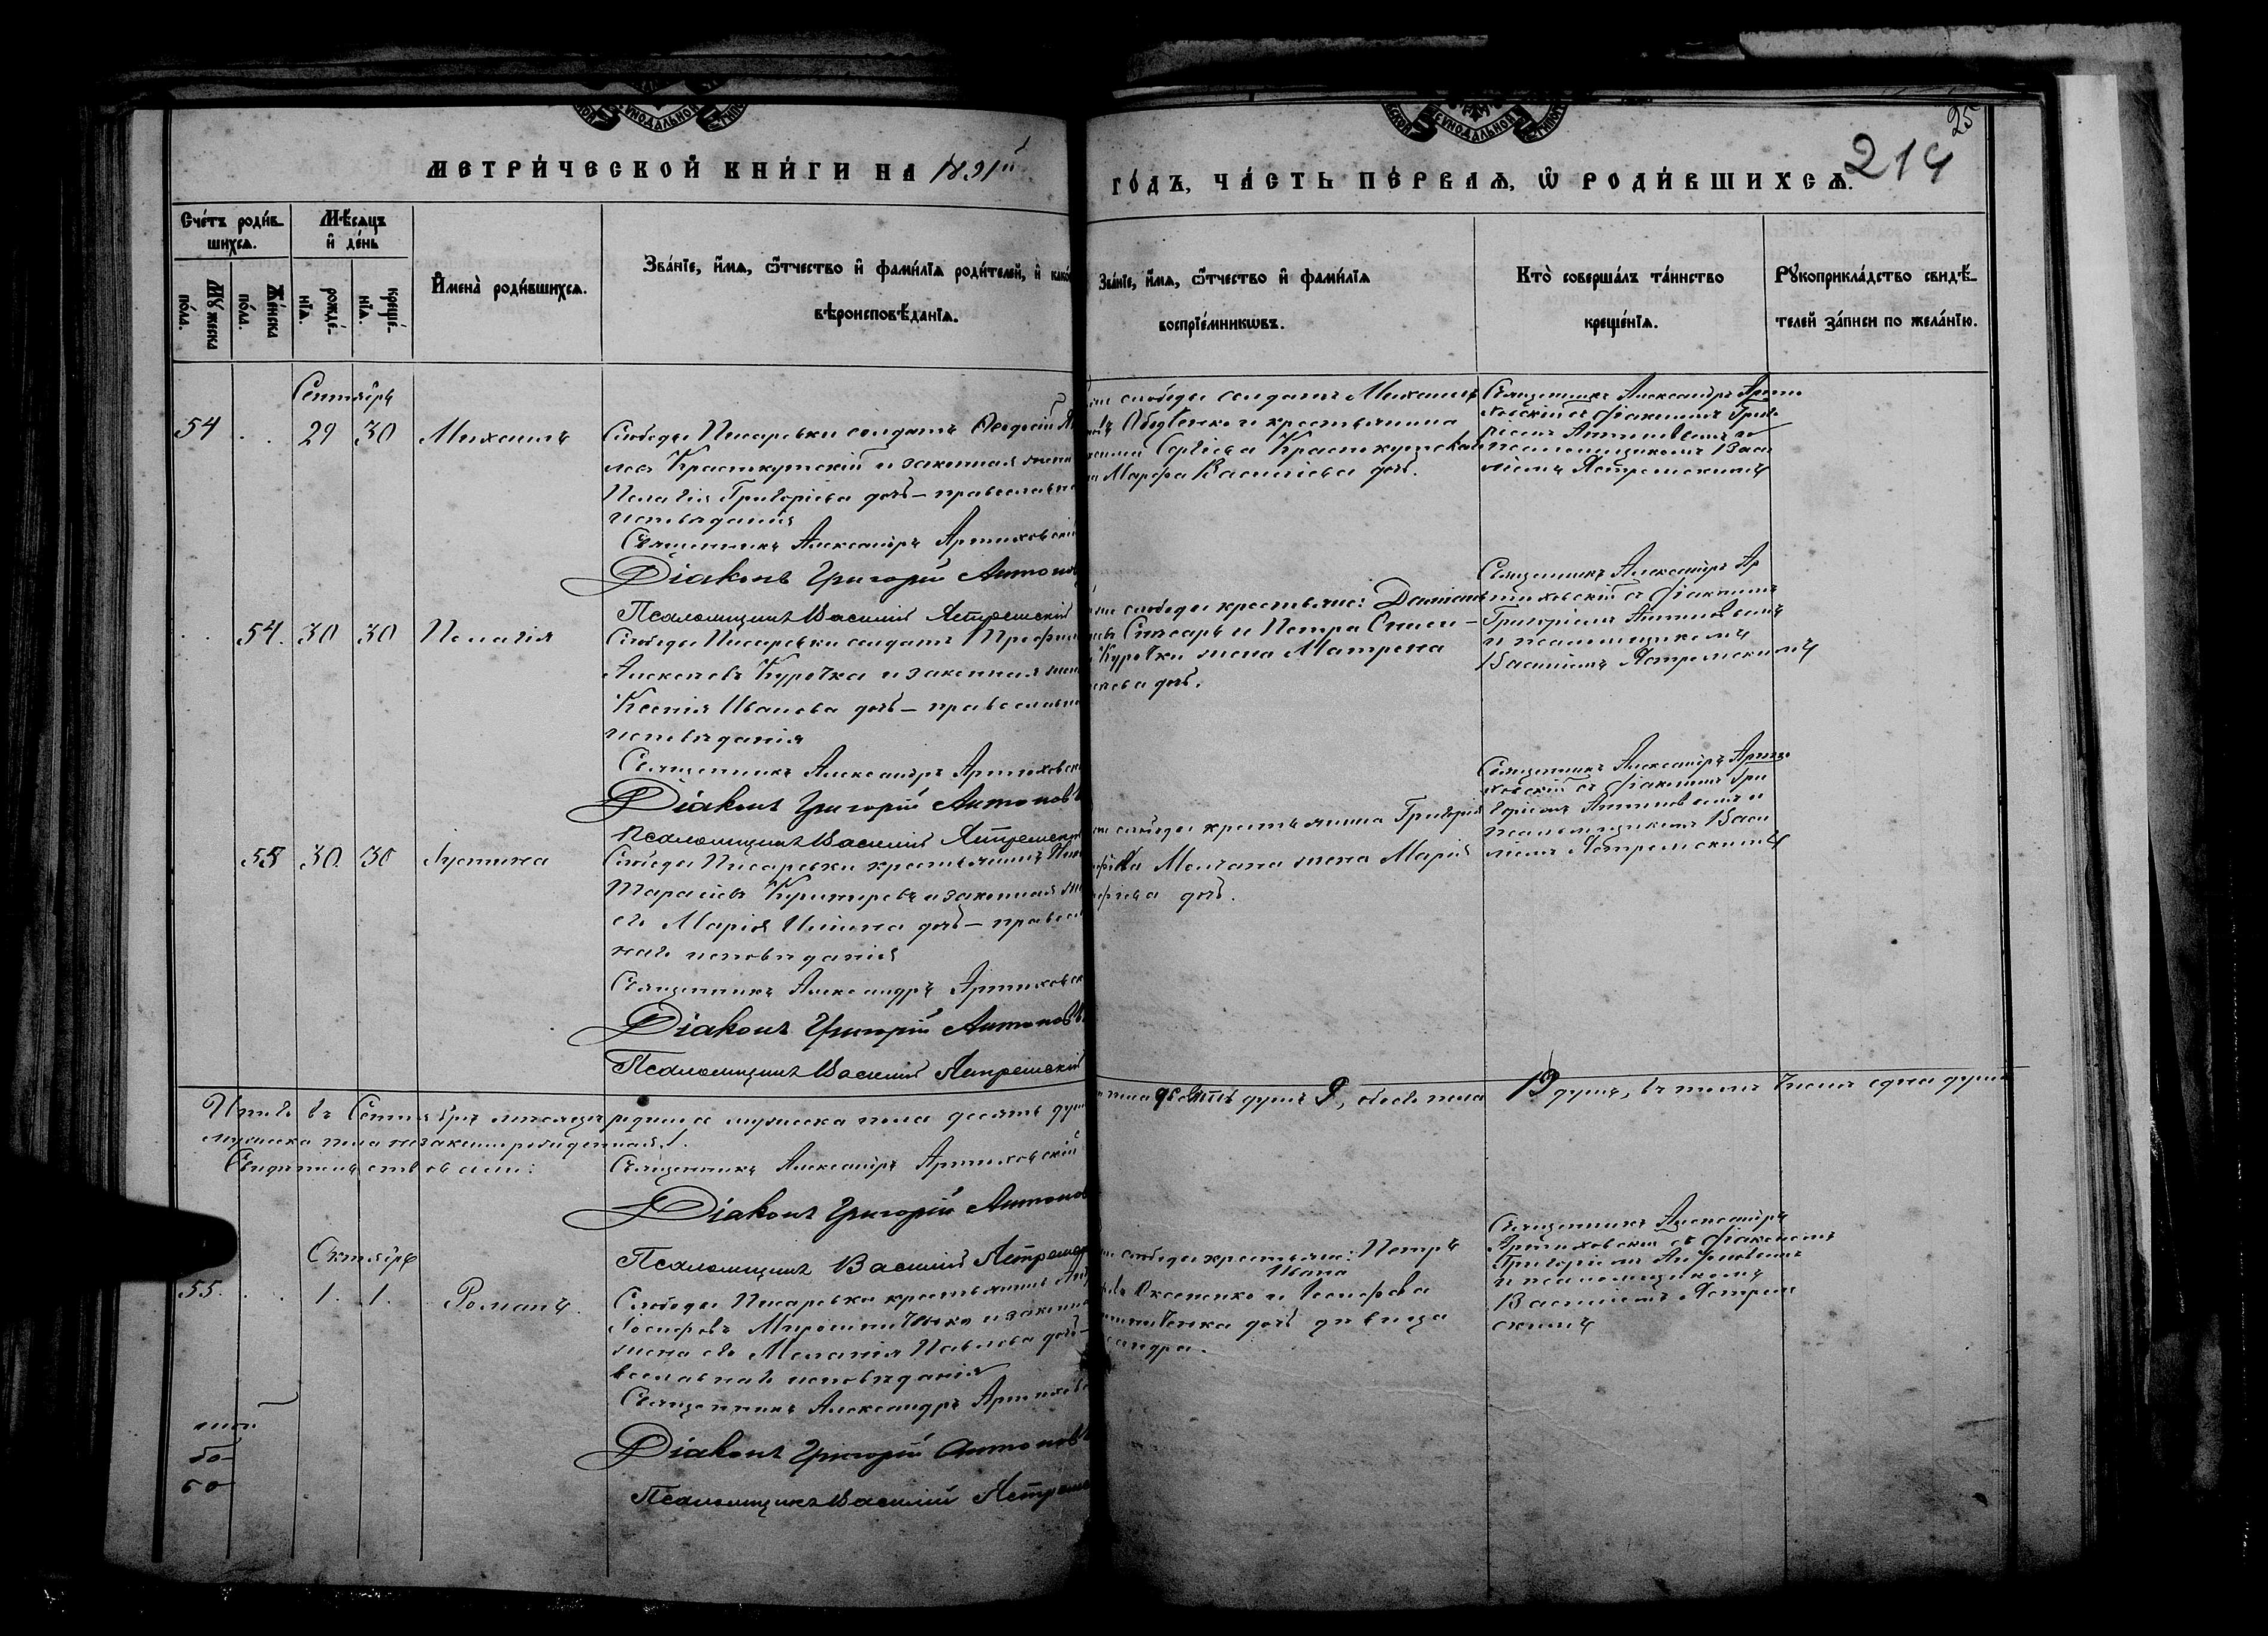 25
214
МЕТРИ́ЧЕСКОЙ КНИ́ГИ НА 1891й
ГО́ДЪ, ЧА́СТЬ ПЕ́РВАѦ, Ѡ҆ РОДИ́ВШИХСѦ.
Сче́тъ роди́в
шихсѧ.
Мꙋ́жеска
по́ла.
Же́нска
по́ла.
Мѣ́сѧцъ
и҆ де́нь
рожде́
нїѧ.
креще́
нїѧ.
И҆мена̀ роди́вшихсѧ.
Зва́нїе, и҆́мѧ, ѻ҆́тчество и҆ фами́лїѧ роди́телей, и҆ како́
вѣроисповѣ́данїѧ.
Зва́нїе, и҆́мѧ, ѻ҆́тчество и҆ фами́лїѧ
воспрїе́мникѡвъ.
Кто̀ соверша́лъ та́инство
креще́нїѧ.
Рꙋкоприкла́дство свидѣ́
телей за́писи по жела́нїю.
Сентябрь
54 . . 29 30 Михаилъ
Слободы Писаревки солдатъ Ѳеодосій
Краснокутскій и законная
Пелагія Григоріева дочь – православн
исповѣданія
Священникъ Александръ Артюховскій
Діаконъ Григорій Антонов
Псаломщикъ Василій Ястремскій
слободы солдатъ Михаилъ
и крестьянина
Сергіева Краснокутска
Марфа Василіева дочь.
Священникъ Александръ Артю
ховскій съ діакономъ Григо
ріемъ Антоновымъ и
псаломщикомъ Васи
ліемъ Ястремскимъ
. . 54. 30 30 Пелагія
Слободы Писаревки солдатъ
Алексѣевъ Курочка и законная
Ксенія Иванова дочь – православн
исповѣданія
Священникъ Александръ Артюховск
Діаконъ Григорій Антоновъ
Псаломщикъ Василій Ястремскій
слободы крестьяне: Даміанъ
Слюсарь и Петра
Курочки жена Матрена
дочь.
Священникъ Александръ Ар
тюховскій съ діакономъ
Григоріемъ Антоновымъ
и псаломщикомъ
Василіемъ Ястремскимъ
55 30. 30 Іустина
Слободы Писаревки крестьянинъ
Тарасіевъ и законная
его Марія дочь – правосл
наго исповѣданія
Священникъ Александръ Артюховск
Діаконъ Григорій Антоновъ
Псаломщикъ Василій Ястремскій
слободы крестьянина Григорія
Молчана жена Марія
дочь.
Священникъ Александръ Артю
ховскій съ діакономъ Гри
горіемъ Антоновымъ и
псаломщикомъ Васи
ліемъ Ястремскимъ
Итого въ Сентябрѣ мѣсяцѣ родилось мужеска пола десять душ
пола девять душъ 9, обоего пола 19 душъ, въ томъ числѣ одна душа
мужеска пола незаконнорожденная.
Свидѣтельствовали:
Священникъ Александръ Артюховскій
Діаконъ Григорій Антонов
Псаломщикъ Василій Ястремск
Октябрь
55. . . 1. 1. Романъ.
Слободы Писаревки крестьянинъ
Іосифовъ Мирошниченко и законна
жена его Меланія Павлова дочь –
вославнаго исповѣданія
Священникъ Александръ Артюхов
Діаконъ Григорій Антоновъ
Псаломщикъ Василій Ястремск
слободы крестьяне: Петръ
Ивана
Оксененко и Іосифова
дочь дѣвица
Священникъ Александръ
Артюховскій съ діакономъ
Григоріемъ Антоновымъ
и псаломщикомъ
Василіемъ Ястрем
скимъ